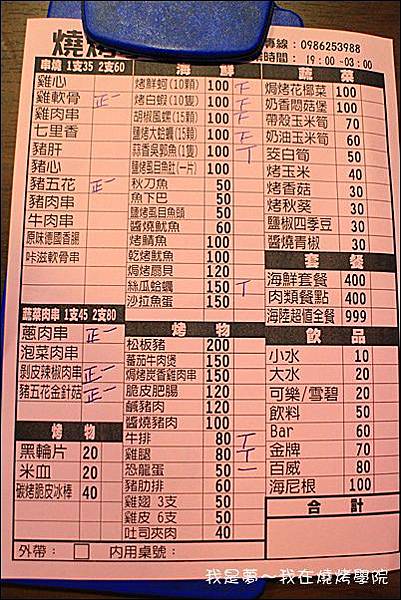 燒烤
專線：0986253988
時間：19:00~03:00
串燒 1支35 2支60
雞心
雞軟骨 正一
雞肉串
七里香
豬肝
豬心
豬五花 正一
豬肉串
牛肉串
原味德國香腸
咔滋軟骨串
蔬菜肉串 1支45 2支80
蔥肉串 正一
泡菜肉串
剝皮辣椒肉串 正一
豬五花金針菇 正一
烤物
黑輪片 20
米血 20
碳烤脆皮冰棒 40
海鮮
烤鮮蚵(10顆) 100
烤白蝦(10隻) 100
胡椒風螺(15顆) 100
鹽烤大蛤蠣(15顆) 100
蒜香吳郭魚(1隻) 100
鹽烤虱目魚肚(一片) 100
秋刀魚 50
魚下巴 50
鹽烤虱目魚頭 50
醬燒魷魚 60
烤鯖魚 100
乾烤魷魚 100
焗烤扇貝 120
絲瓜蛤蠣 150
沙拉魚蛋 150
烤物
松板豬 200
蕃茄牛肉煲 150
焗烤炭香雞肉串 150
脆皮肥腸 120
鹹豬肉 120
醬燒豬肉 100
牛排 80
雞腿 80
恐龍蛋 50 一
豬肋排 60
雞翅 3支 50
雞皮 6支 50
吐司夾肉 40
蔬菜
焗烤花椰菜 100
奶香悶菇煲 100
帶殼玉米筍 70
奶油玉米筍 60
茭白筍 50
烤玉米 40
烤香菇 30
烤秋葵 30
鹽椒四季豆 30
醬燒青椒 30
套餐
海鮮套餐 400
肉類餐點 400
海陸超值全餐 999
飲品
小水 10
大水 20
可樂/雪碧 20
飲料 50
Bar 60
金牌 70
百威 80
海尼根 100
合計
外帶：□ 內用桌號：
我是夢～我在燒烤學院